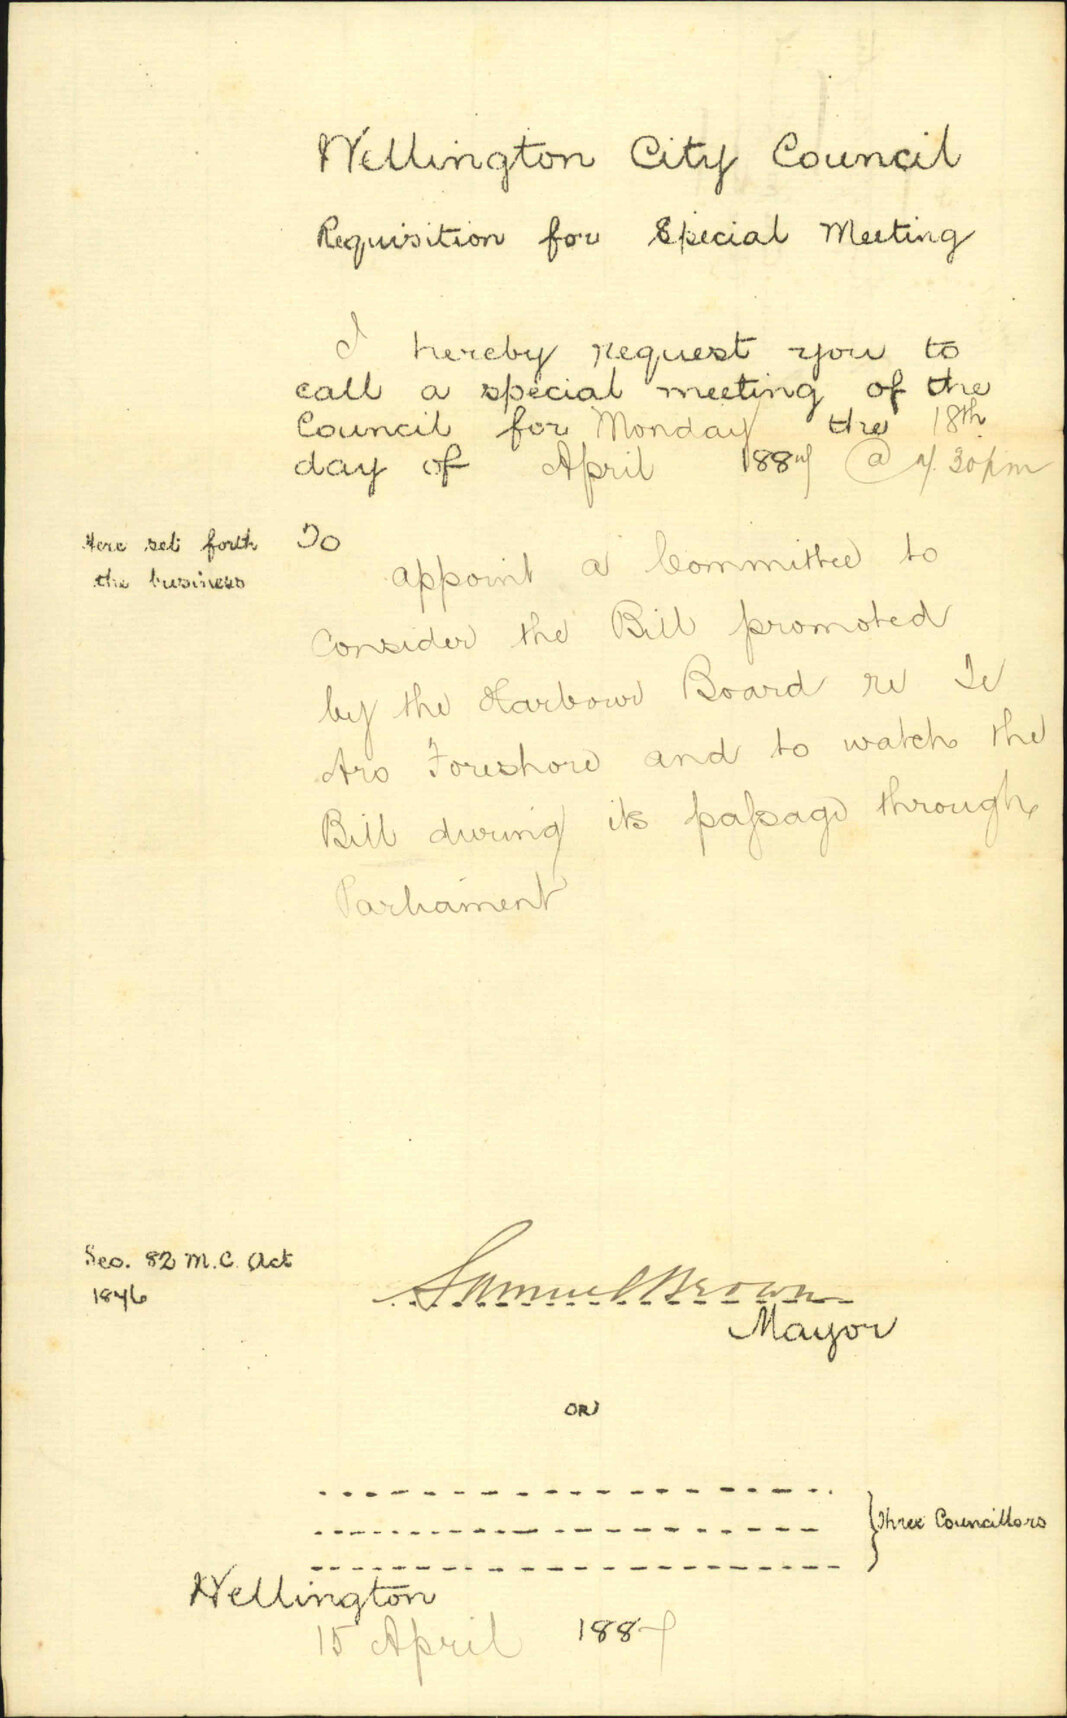 Wellington City Council
Requisition for Special Meeting
I hereby request you to
call a special meeting of the
Council for Monday the 18th
day of April 1887 @ 7.30pm
Here set forth
the business
To
appoint a Committee to
Consider the Bill promoted
by the Harbour Board re Te
Aro Foreshore and to watch the
Bill during its paſsage through
Parliament
Sec. 82 M.C. Act
1876
Samuel Brown
Mayor
OR
Three Councillors
Wellington
15 April 1887